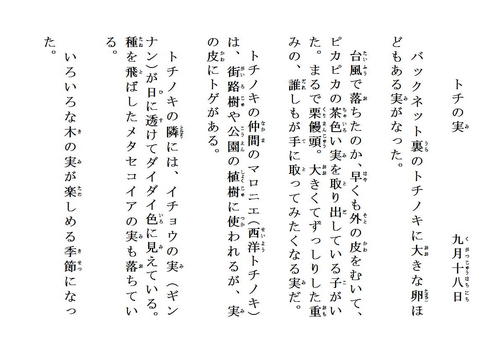 トチの実　九月十八日
バックネット裏のトチノキに大きな卵ほ
どもある実がなった。
台風で落ちたのか、早くも外の皮をむいて、
ピカピカの茶色い実を取り出している子がい
た。まるで栗饅頭。大きくてずっしりした重
みの、誰しもが手に取ってみたくなる実だ。
トチノキの仲間のマロニエ（西洋トチノキ）
は、街路樹や公園の植樹に使われるが、実
の皮にトゲがある。
トチノキの隣には、イチョウの実（ギン
ナン）が日に透けてダイダイ色に見えている。
種を飛ばしたメタセコイアの実も落ちてい
る。
いろいろな木の実が楽しめる季節になっ
た。